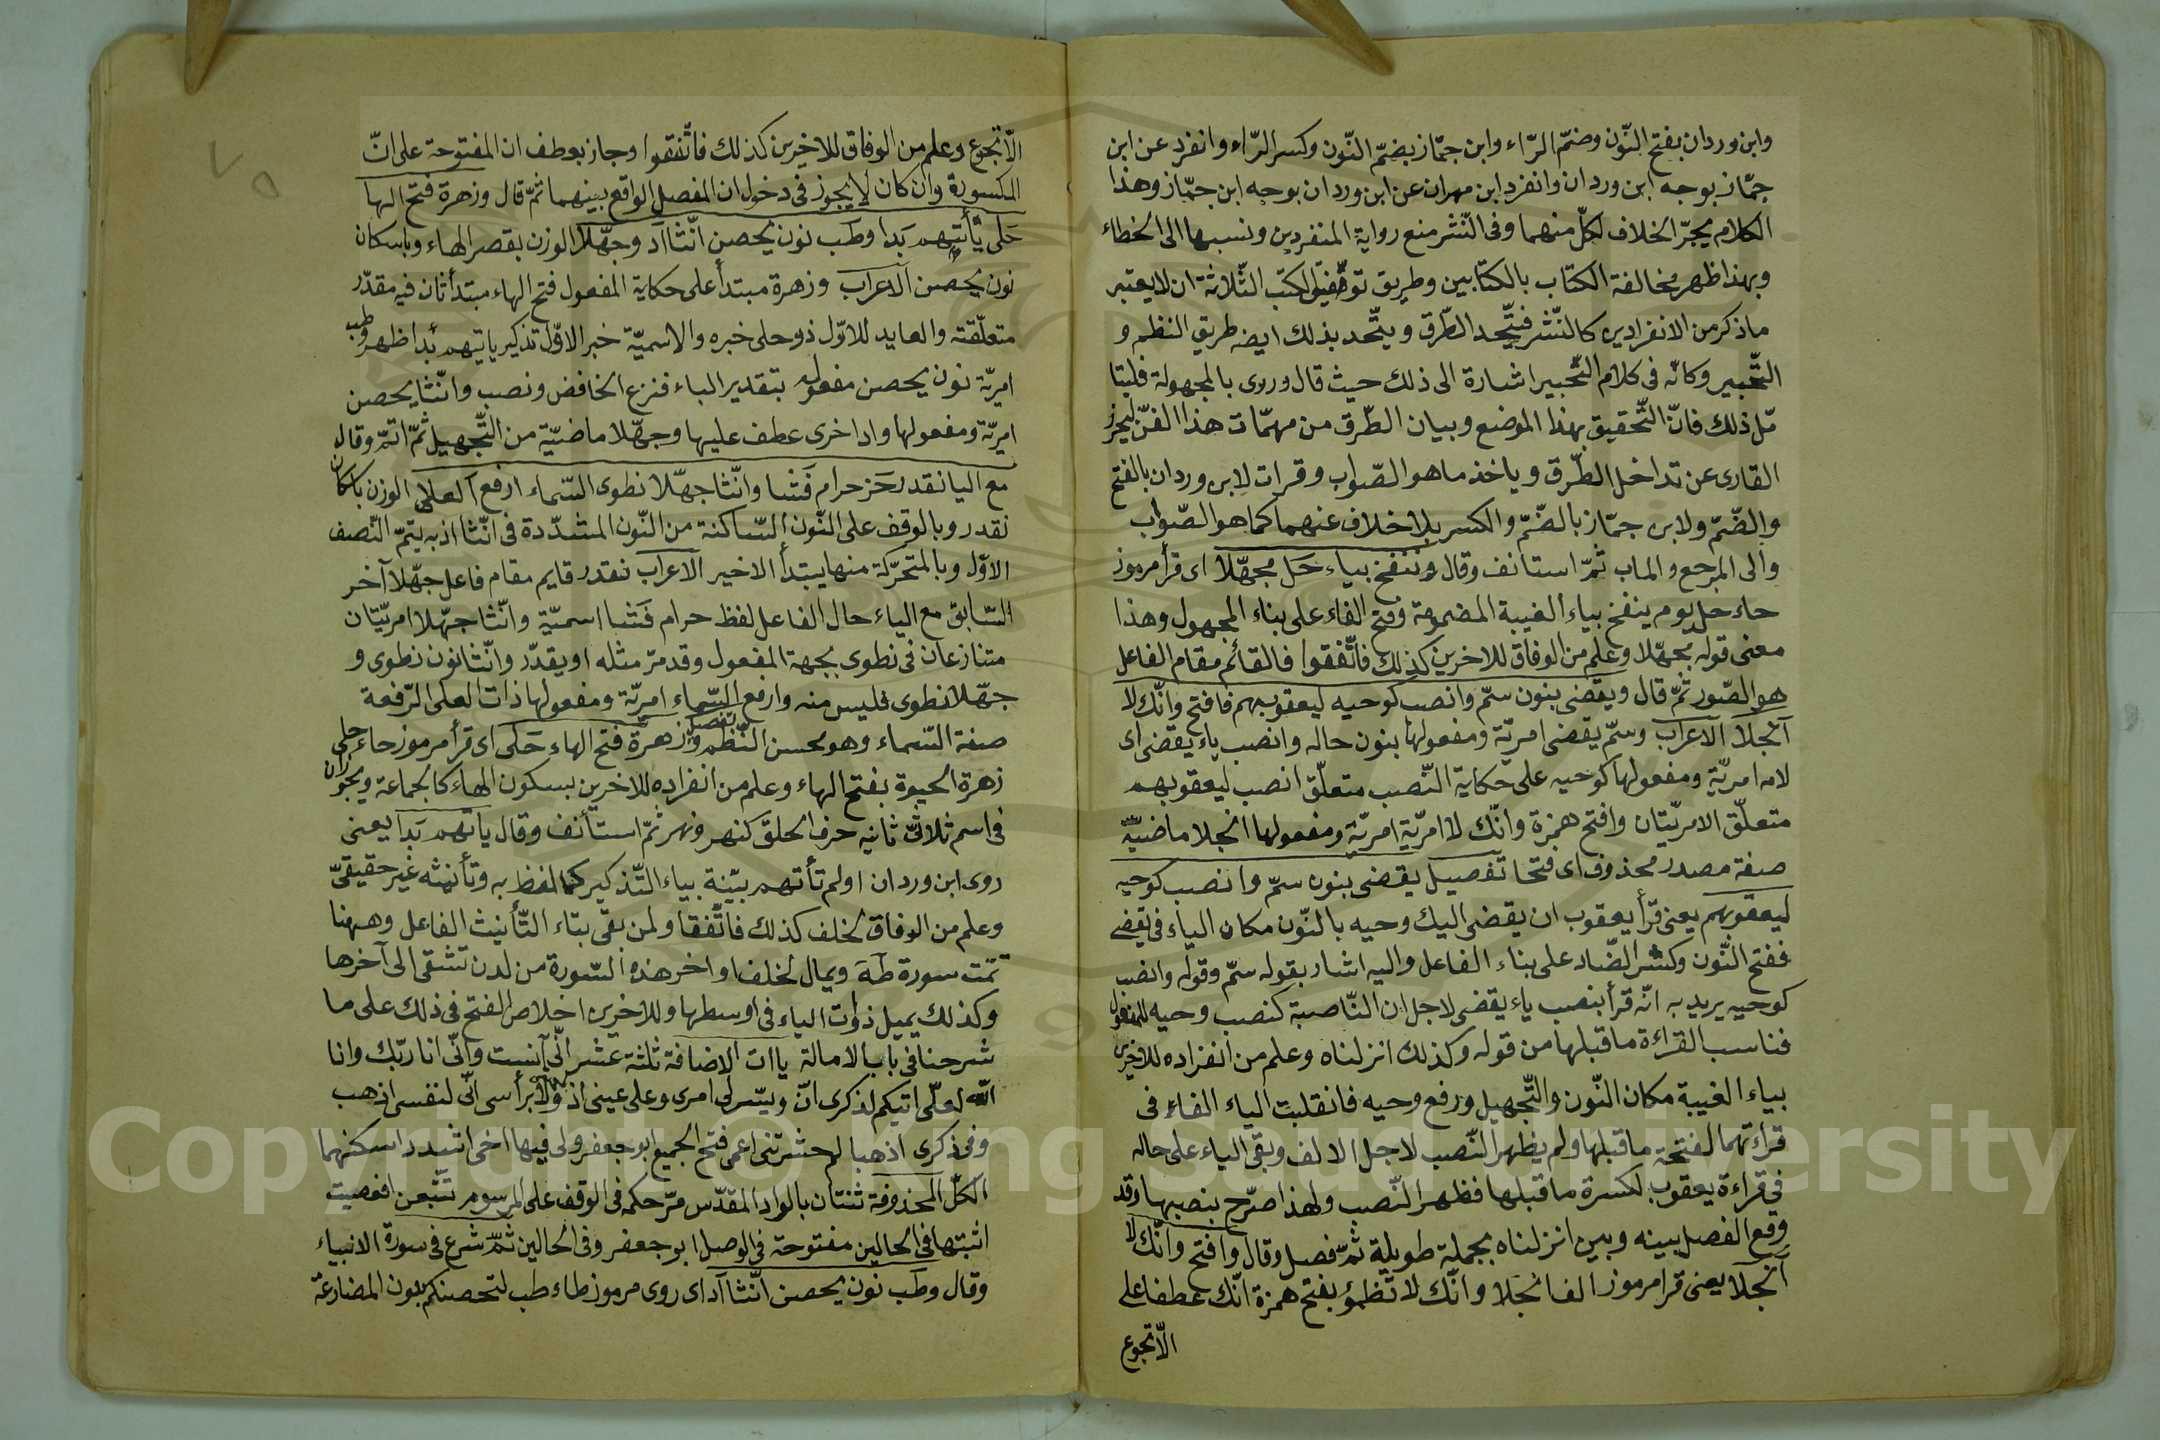 وابن وردان بفتح النّون وضمّ الرّاء وابن جمّاز بضمّ النّون وكسر الرّاء وانفرد عن ابن
جمّاز بوجه ابن وردان وانفرد ابن مهران عن ابن وردان بوجه ابن جمّاز وهذا
الكلام يجرّ الخلاف لكلّ منهما وفى النّشر منع رواية المنفردين ونسبها الى الخطاء
وبهذا ظهر مخالفة الكتاب بالكتابين وطريق توفيق الكتب الثّلاثة ان لا يعتبر
ماذكر من الانفرادين كالنّشر فيتّحد الطّرق ويتّحد بذلك ايضه طريق النظم و
التّحبير وكانّه فى كلام التّحبير اشارة الى ذلك حيث قال وروى بالمجهولة فليتا
مّل ذلك فانّ التّحقيق بهذا الموضع وبيان الطّرق من مهمّات هذا الفنّ ليحرز
القارى عن تداخل الطّرق وياخذ ماهو الصّواب وقرات لابن وردان بالفتح
والضّمّ ولابن جمّاز بالضّمّ والكسر بلا خلاف عنهما كما هو الصّواب
والى المرجع والماب ثمّ استانف وقال وننفخ بياء حَل مجهّلا اى قرأ مرموز
حاء حل يوم ينفخ بياء الغيبة المضمومة وفتح الفاء على بناء المجهول وهذا
معنى قوله مجهّلا وعلم من الوفاق للاخرين كذلك فاتّفقوا فالقائم مقام الفاعل
هو الصّور ثمّ قال ويقضى بنون سمّ وانصب كوحيه ليعقوبهم فافتح وانّك لا
آنجلا الاعراب وسمّ يقضى امريّة ومفعولها بنون حاله وانصب ياء يقضى اى
لامه امريّة ومفعولها كوحيه على حكاية النّصب متعلّق انصب ليعقوبهم
متعلّق الامريّتان وافتح همزة وانّك لا امريّة امريّة ومفعولها انجلا ماضيّة
صفة مصدر محذوف اى فتحا تفصيل يقضى بنون سمّ وانصب كوحيه
ليعقوبهم يعنى قرأ يعقوب ان يقضى اليك وحيه بالنّون مكان الياء فى يقضى
ففتح النّون وكسر الضّاد على بناء الفاعل واليه اشار بقوله سمّ وقوله وانصب
كوحيه يريد به انّه قرأ بنصب ياء يقضى لاجل ان النّاصبة كنصب وحيه للمفعول
فناسب القراءة ماقبلها من قوله وكذلك انزلناه وعلم من انفراده للاخرين
بياء الغيبة مكان النّون والتّجهيل ورفع وحيه فانقلبت الياء الفاء فى
قراءتهما لفتحة ماقبلها ولم يظهر النّصب لاجل الالف وبقى الياء على حاله
فى قراءة يعقوب لكسرة ماقبلها فظهر النّصب ولهذا صرّح بنصبها وقد
وقع الفصل بينه وبين انزلناه بجملة طويلة ثمّ فصل وقال وافتح وانّك لا
آنجلا يعنى قرا مرموز الف انجلا وانّك لا تظمؤ بفتح همزة انّك عطفا على
الّا تجوع
الّا تجوع وعلم من الوفاق للاخرين كذلك فاتّفقوا وجاز بعطف ان المفتوحة على انّ
المكسورة وان كان لا يجوز فى دخول ان المفصل الواقع بينهما ثمّ قال وزهرة فتح الها
حَلى يأتيهم بَدا وطَب نون يحصن انّثا آد وجهّلا الوزن بقصر الهاء وباسكان
نون يحصن الاعراب وزهرة مبتدأ على حكاية المفعول فتح الهاء مبتدأ ثان فيه مقدّر
متعلّقته والعايد للاوّل ذو حلى خبره والاسميّة خبر الاوّل تذكير ياتيهم بدا ظهر وطب
امريّة نون يحصن مفعوله بتقدير الباء فنزع الخافض ونصب وانّثا يحصن
امريّة ومفعولها واد اخرى عطف عليها وجهّلا ماضيّة من التّجهيل ثمّ اتمّ وقال
مع اليا نقدر حَز حرام فَشا وانّثا جهّلا نطوى السّماء ارفع العلا الوزن باسكان
نقدر وبالوقف على النّون السّاكنة من النّون المشدّدة فى انّثا اذ به يتمّ النّصف
الاوّل وبالمتحرّكة منها يبتدأ الاخير الاعراب نقدر قايم مقام فاعل جهّلا آخر
السّابق مع الياء حال الفاعل لفظ حرام فَشا اسميّة وانّثا جهّلا امريّتان
متنازعان فى نطوى بجهة المفعول وقد مرّ مثله او يقدّر وانّثا نون نطوى و
جهّلا نطوى فليس منه وارفع السّماء امريّة ومفعولها ذات العلى الرّفعة
صفة السّماء وهو محسن النّظم تفصيل وزهرة فتح الهاء حَلى اى قرأ مرموز حاء حلى
زهرة الحيوة بفتح الهاء وعلم من انفراده للاخرين بسكون الهاء كالجماعة ويجوزان
فى اسم ثلاثىّ ثانيه حرف الحلق كنهر ونهر ثمّ استأنف وقال ياتهم بَدا يعنى
روى ابن وردان اولم تأتهم بيّنة بياء التّذكير كما لفظ به وتأنيثه غير حقيقىّ
وعلم من الوفاق لخلف كذلك فاتّفقا ولمن بقى بتاء التّأنيث الفاعل وههنا
تمّت سورة طه ويمال لخلف اواخر هذه السّورة من لدن تشقى الى آخرها
وكذلك يميل ذوات الياء فى اوسطها وللاخرين اخلاص الفتح فى ذلك على ما
شرحنا فى باب الامالة ياات الاضافة ثلثة عشر انّى آنست وانّى انا ربّك وانا
الله لعلّى اتيكم لذكرى انّ ويسّرلى امرى وعلى عينى اذ ولا برأسى انّى لنفسى اذهب
وفى ذكرى اذهبا لم حشرتنى اعمى فتح الجميع ابو جعفر ولى فيها اخى اشدد اسكنهما
الكلّ المحذوفة ثنتان بالواد المقدّس مرّ حكمه فى الوقف على المرسوم تتّبعن افعصيت
اثبتها فى الحالين مفتوحة فى الوصل ابو جعفر وفى الحالين ثمّ شرع فى سورة الانبياء
وقال وطَب نون يحصن انّثا آد اى روى مرموز طاء طب لتحصنكم بنون المضارعة
٧٥
Copyright © King Saud University